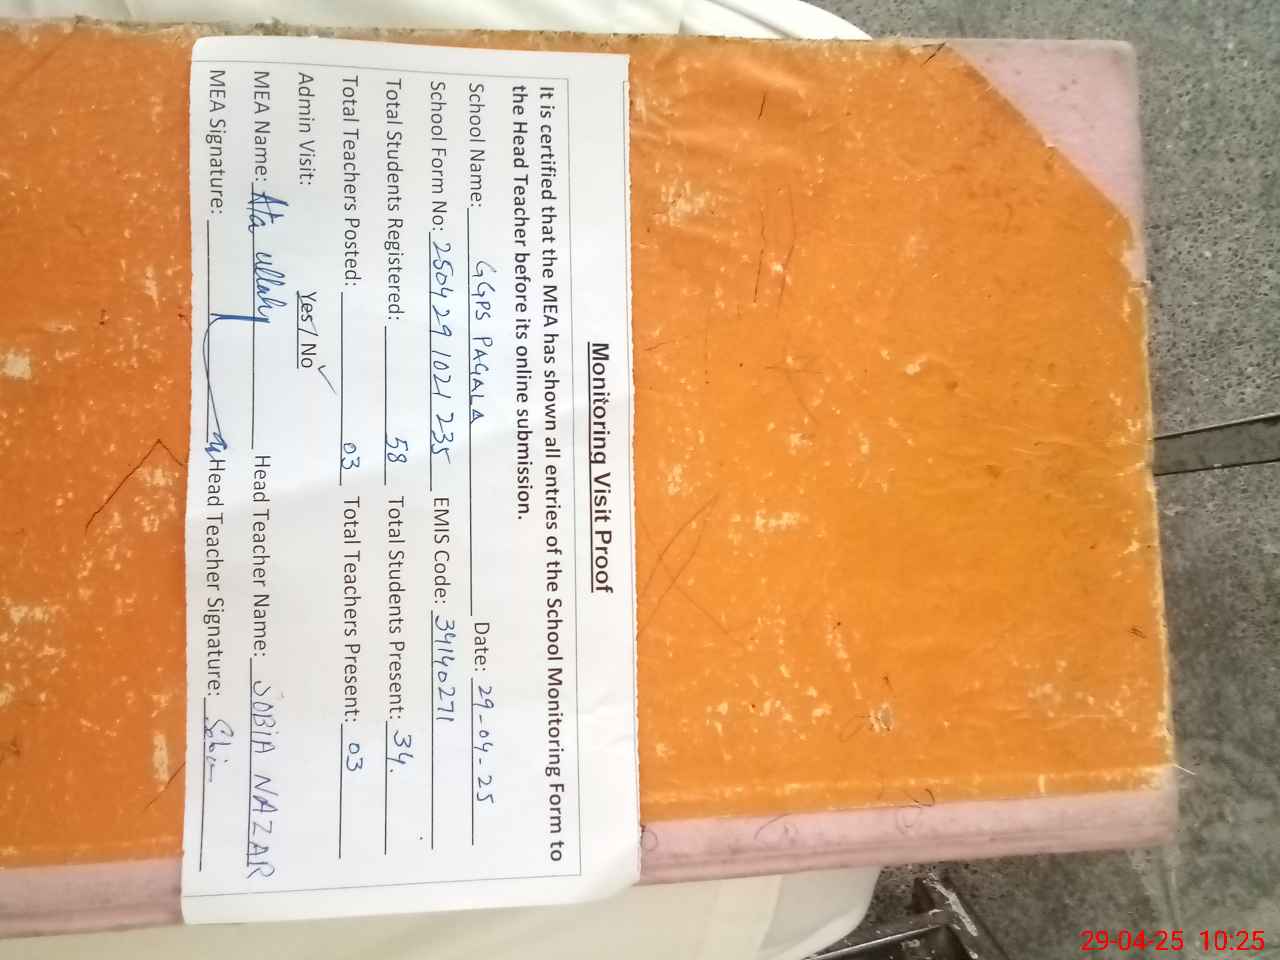 Monitoring Visit Proof
It is certified that the MEA has shown all entries of the School Monitoring Form to
the Head Teacher before its online submission.
School Name: GGPS PAGALA Date: 29-04-25
School Form No: 250429 1021 235 EMIS Code: 34140271
Total Students Registered: 58 Total Students Present: 34.
Total Teachers Posted: 03 Total Teachers Present: 03
Admin Visit: Yes / No ✓
MEA Name: Ata ullah Head Teacher Name: SOBIA NAZAR
MEA Signature: Head Teacher Signature: Sobia
29-04-25 10:25